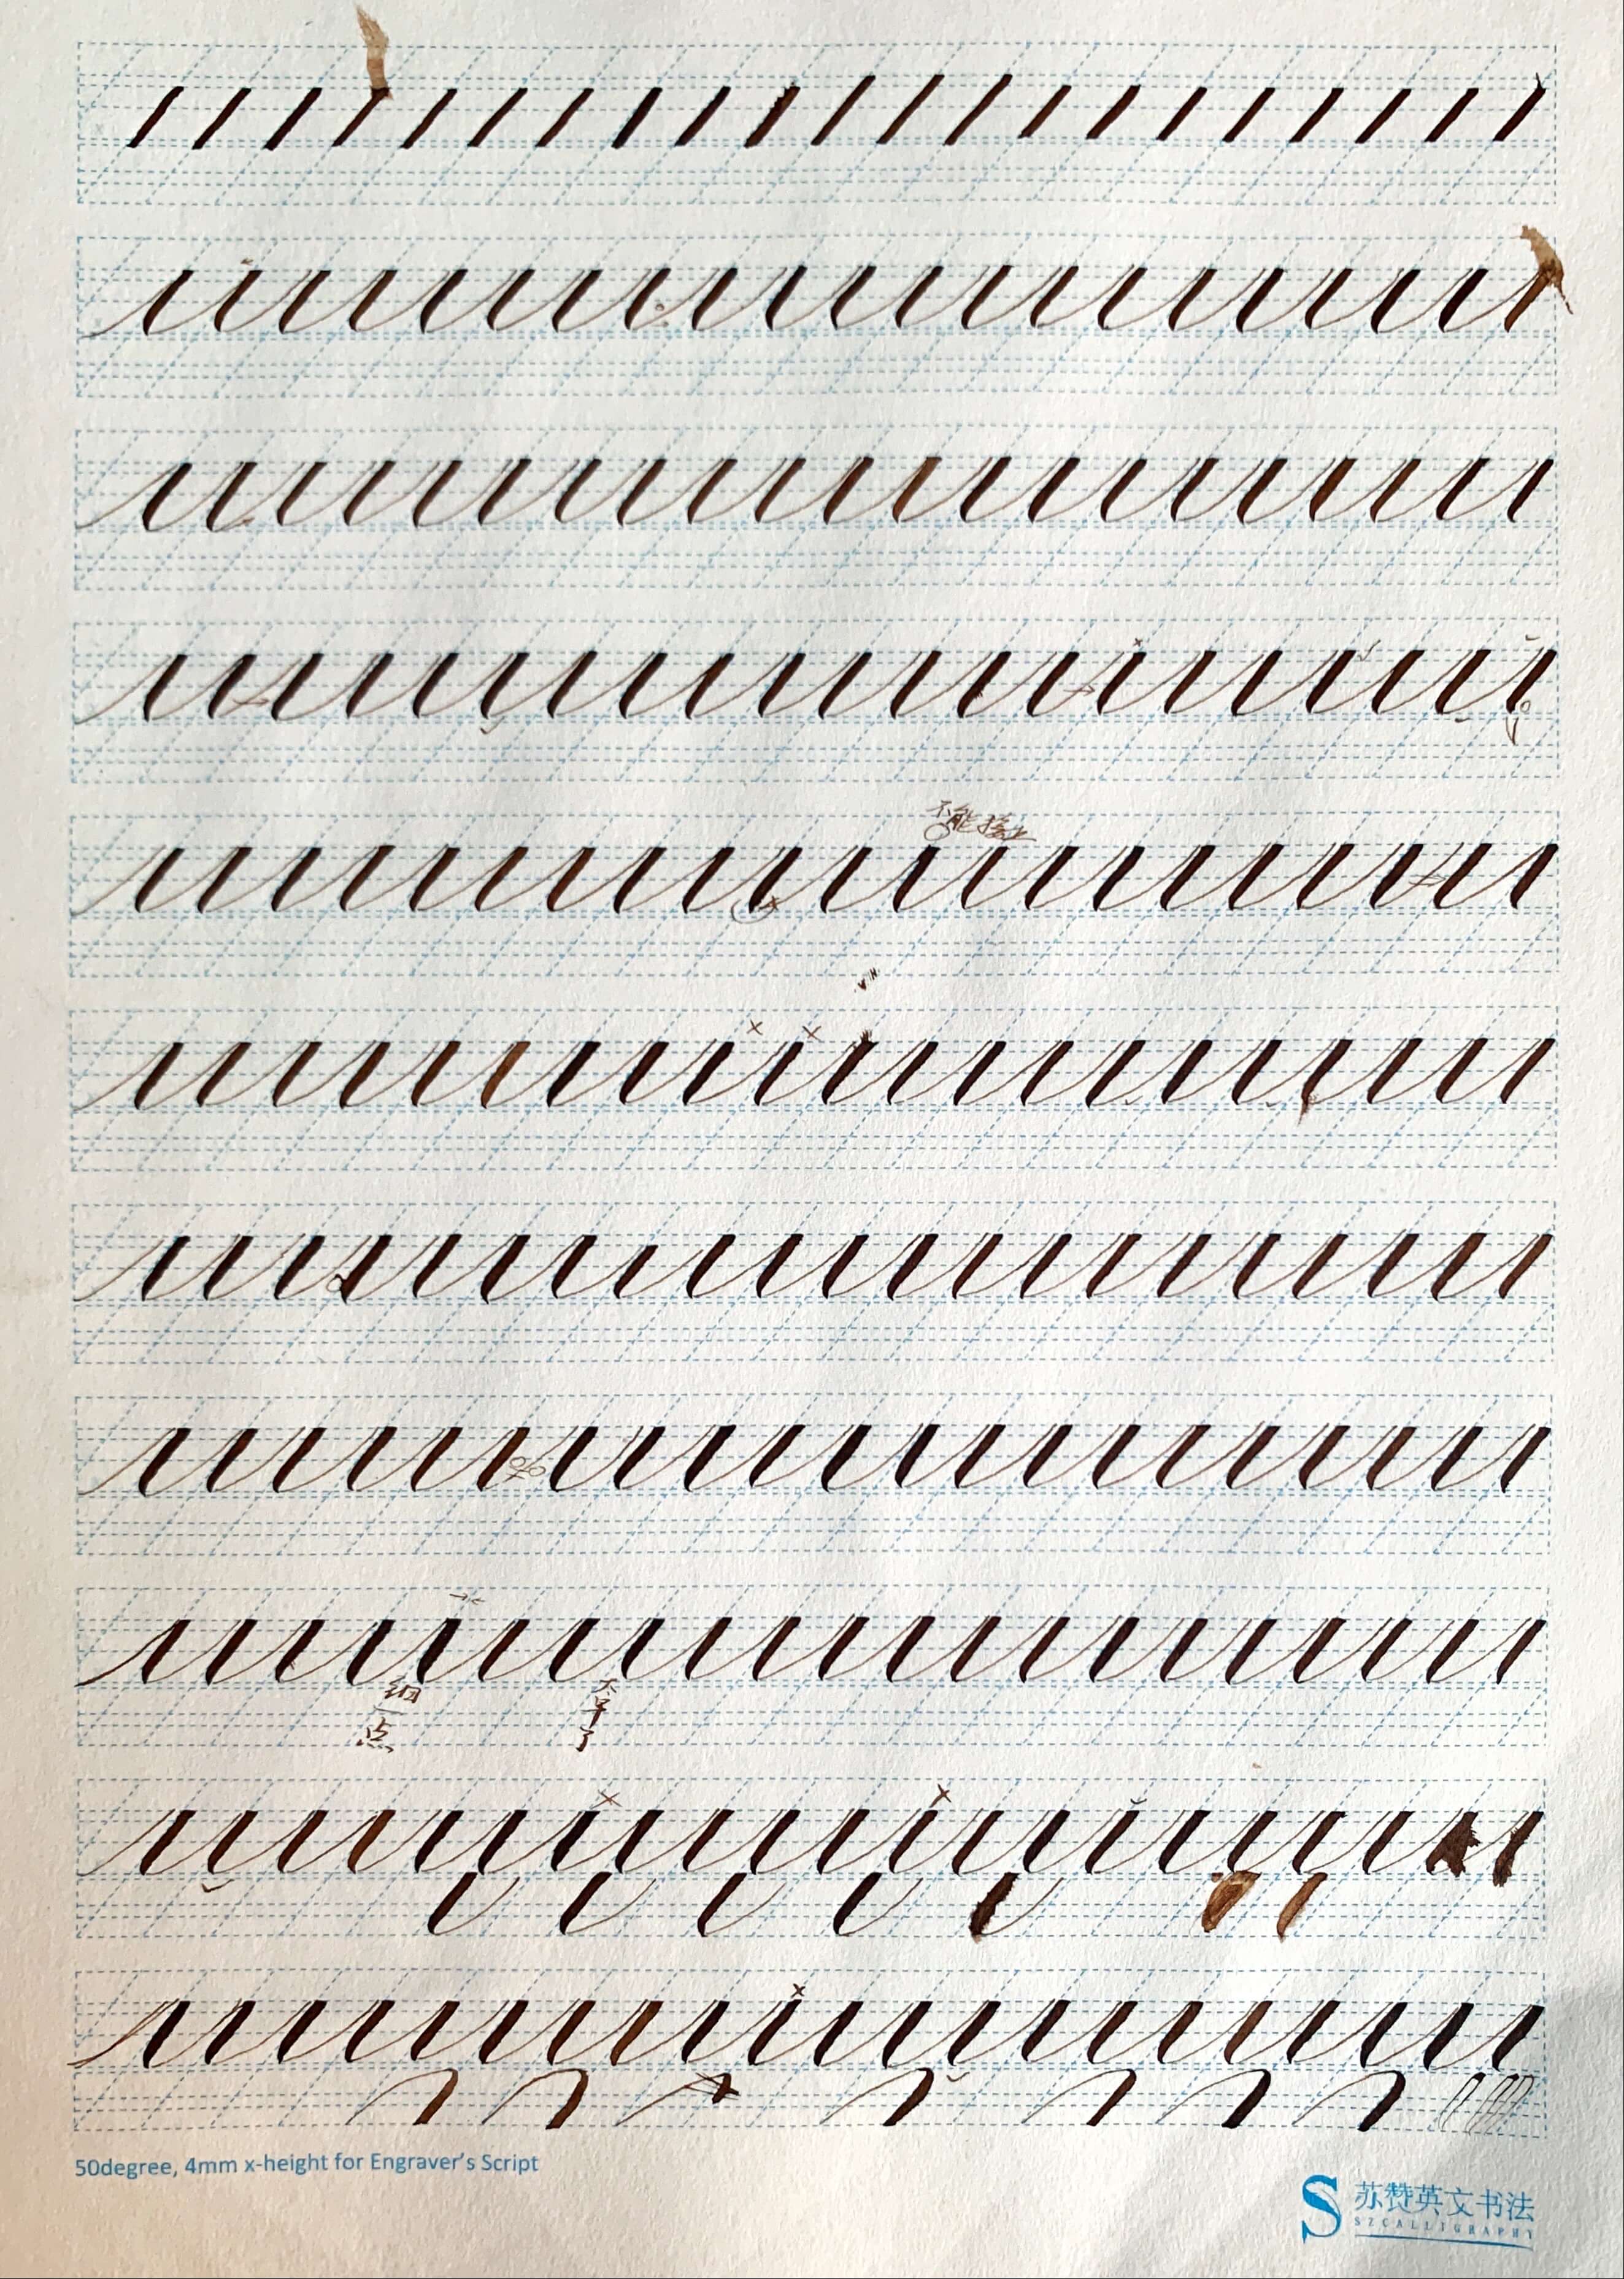 不能接上
细一点
太早了
50degree, 4mm x-height for Engraver's Script
S 苏赞英文书法
SZCALLIGRAPHY